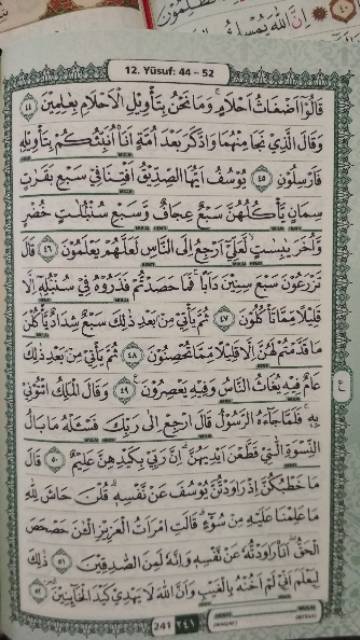 12. Yūsuf: 44 – 52
قَالُوْٓا اَضْغَاثُ اَحْلَامٍ ۚوَمَا نَحْنُ بِتَأْوِيْلِ الْاَحْلَامِ بِعٰلِمِيْنَ ٤٤
وَقَالَ الَّذِيْ نَجَا مِنْهُمَا وَادَّكَرَ بَعْدَ اُمَّةٍ اَنَا۠ اُنَبِّئُكُمْ بِتَأْوِيْلِهٖ
فَاَرْسِلُوْنِ ٤٥ يُوْسُفُ اَيُّهَا الصِّدِّيْقُ اَفْتِنَا فِيْ سَبْعِ بَقَرٰتٍ
سِمَانٍ يَّأْكُلُهُنَّ سَبْعٌ عِجَافٌ وَّسَبْعِ سُنْۢبُلٰتٍ خُضْرٍ
وَّاُخَرَ يٰبِسٰتٍۙ لَّعَلِّيْٓ اَرْجِعُ اِلَى النَّاسِ لَعَلَّهُمْ يَعْلَمُوْنَ ٤٦ قَالَ
تَزْرَعُوْنَ سَبْعَ سِنِيْنَ دَاَبًاۚ فَمَا حَصَدْتُّمْ فَذَرُوْهُ فِيْ سُنْۢبُلِهٖٓ اِلَّا
قَلِيْلًا مِّمَّا تَأْكُلُوْنَ ٤٧ ثُمَّ يَأْتِيْ مِنْۢ بَعْدِ ذٰلِكَ سَبْعٌ شِدَادٌ يَّأْكُلْنَ
مَا قَدَّمْتُمْ لَهُنَّ اِلَّا قَلِيْلًا مِّمَّا تُحْصِنُوْنَ ٤٨ ثُمَّ يَأْتِيْ مِنْۢ بَعْدِ ذٰلِكَ
عَامٌ فِيْهِ يُغَاثُ النَّاسُ وَفِيْهِ يَعْصِرُوْنَ ٤٩ وَقَالَ الْمَلِكُ ائْتُوْنِيْ
بِهٖۚ فَلَمَّا جَاۤءَهُ الرَّسُوْلُ قَالَ ارْجِعْ اِلٰى رَبِّكَ فَسْـَٔلْهُ مَا بَالُ
النِّسْوَةِ الّٰتِيْ قَطَّعْنَ اَيْدِيَهُنَّۗ اِنَّ رَبِّيْ بِكَيْدِهِنَّ عَلِيْمٌ ٥٠ قَالَ
مَا خَطْبُكُنَّ اِذْ رَاوَدْتُّنَّ يُوْسُفَ عَنْ نَّفْسِهٖۗ قُلْنَ حَاشَ لِلّٰهِ
مَا عَلِمْنَا عَلَيْهِ مِنْ سُوْۤءٍۗ قَالَتِ امْرَاَتُ الْعَزِيْزِ الْـٰٔنَ حَصْحَصَ
الْحَقُّۖ اَنَا۠ رَاوَدْتُّهٗ عَنْ نَّفْسِهٖ وَاِنَّهٗ لَمِنَ الصّٰدِقِيْنَ ٥١ ذٰلِكَ
لِيَعْلَمَ اَنِّيْ لَمْ اَخُنْهُ بِالْغَيْبِ وَاَنَّ اللّٰهَ لَا يَهْدِيْ كَيْدَ الْخَاۤىِٕنِيْنَ ٥٢
241 ٢٤١